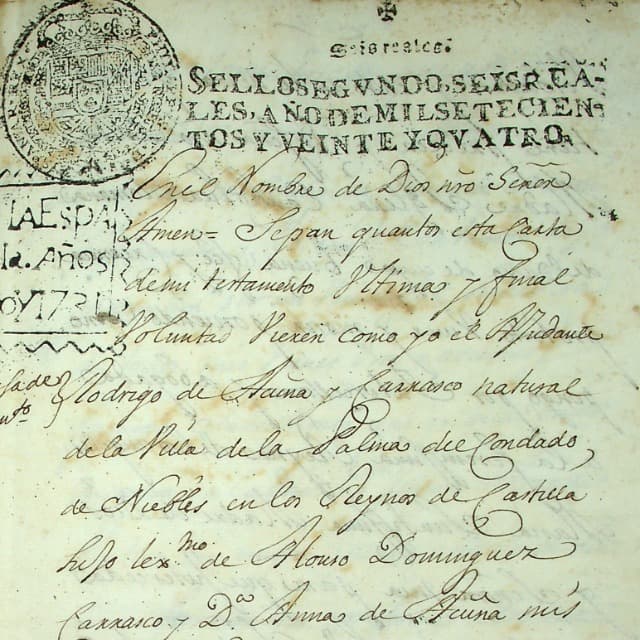 Seis reales.
SELLO SEGVNDO, SEIS R.EA-
LES, AÑO DE MIL SETECIEN-
TOS Y VEINTE Y QVATRO.
En el Nombre de Dios nro Señor
Amen = Sepan quantos esta Carta
de mi testamento Vltima y final
Voluntad Vieren como yo el Ayudante
Rodrigo de Acuña y Carrasco natural
de la Villa de la Palma del Condado,
de Niebles en los Reynos de Castilla
hijo lexmo. de Alonso Dominguez
Carrasco y Da. Anna de Acuña mis
LA ESPA
la. AÑOS
OY 1731